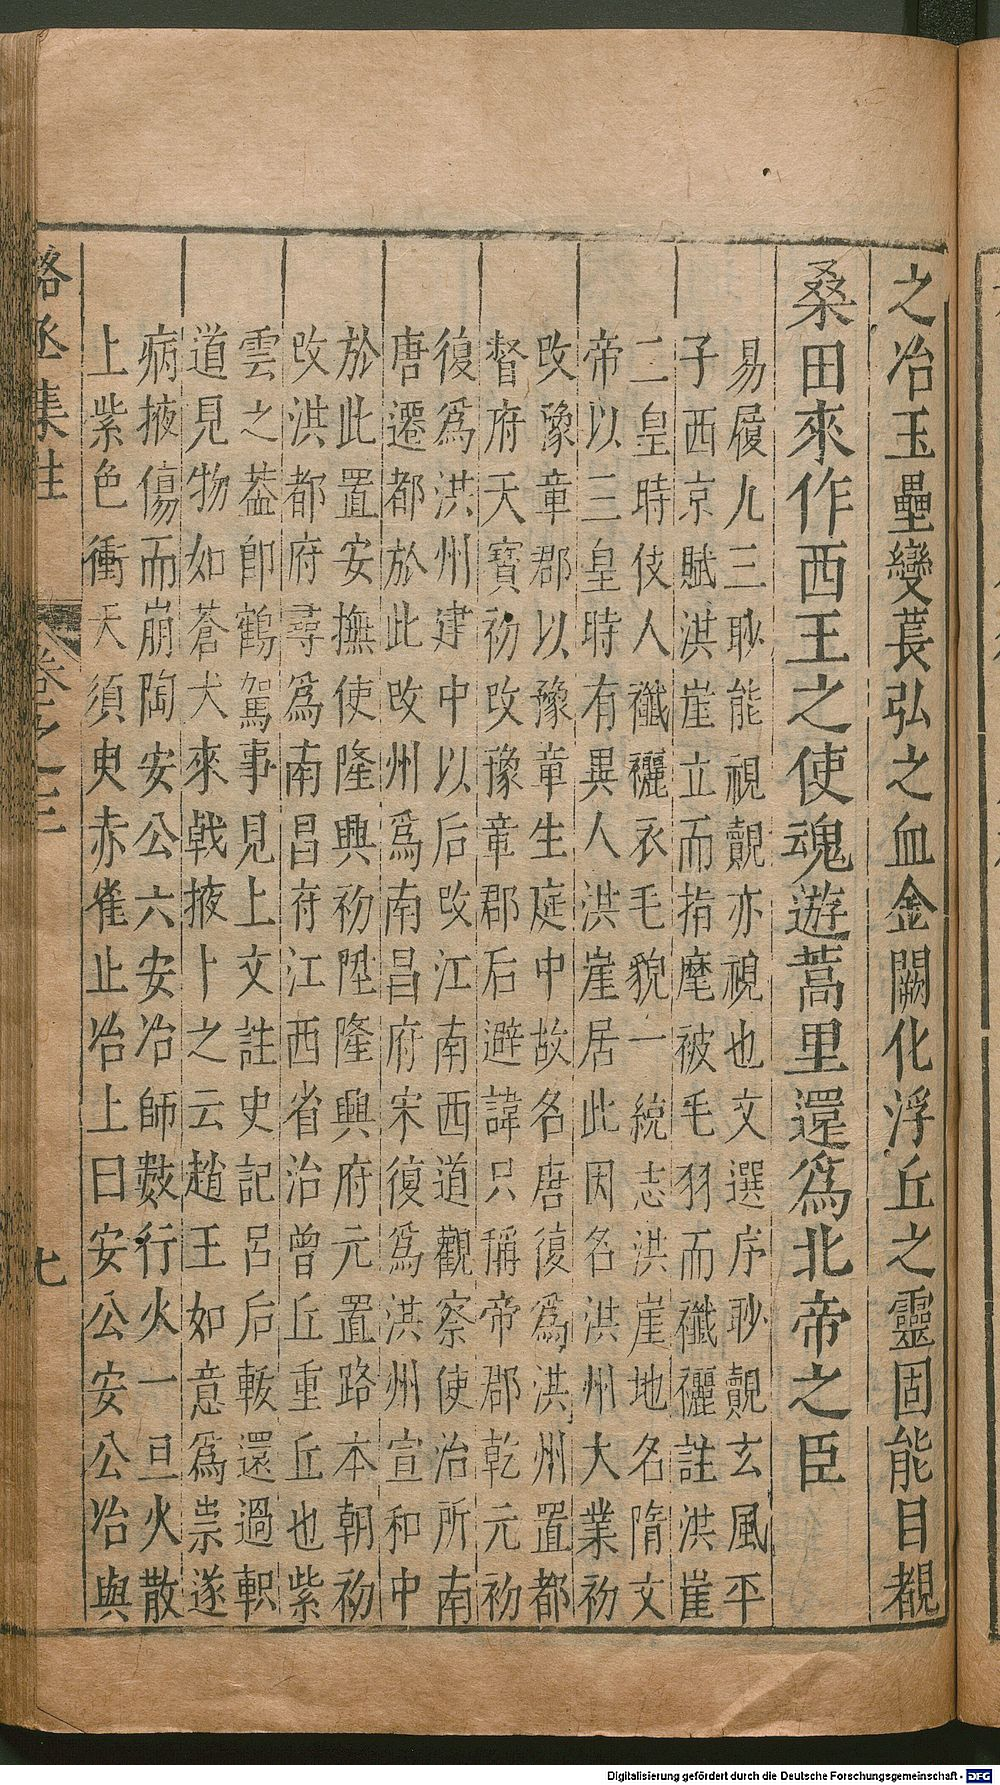 之冶玉壘變萇弘之血金闕化浮丘之靈固能目覩
桑田來作西王之使魂遊蒿里還爲北帝之臣
易履九三眇能視覿亦視也文選序眇覿玄風平
子西京賦洪崖立而指麾被毛羽而襳襹註洪崖
二皇時伎人襳襹衣毛貌一統志洪崖地名隋文
帝以三皇時有異人洪崖居此因名洪州大業初
改豫章郡以豫章生庭中故名唐復爲洪州置都
督府天寶初改豫章郡后避諱只稱帝郡乾元初
復爲洪州建中以后改江南西道觀察使治所南
唐遷都於此改州爲南昌府宋復爲洪州宣和中
於此置安撫使隆興初陞隆興府元置路本朝初
改洪都府尋爲南昌府江西省治曾丘重丘也紫
雲之蓋卽鶴駕事見上文註史記呂后軷還過軹
道見物如蒼犬來戟掖卜之云趙王如意爲祟遂
病掖傷而崩陶安公六安冶師數行火一旦火散
上紫色衝天須臾赤雀止冶上曰安公安公冶與
駱丞集註
卷之三
七
Digitalisierung gefördert durch die Deutsche Forschungsgemeinschaft - DFG